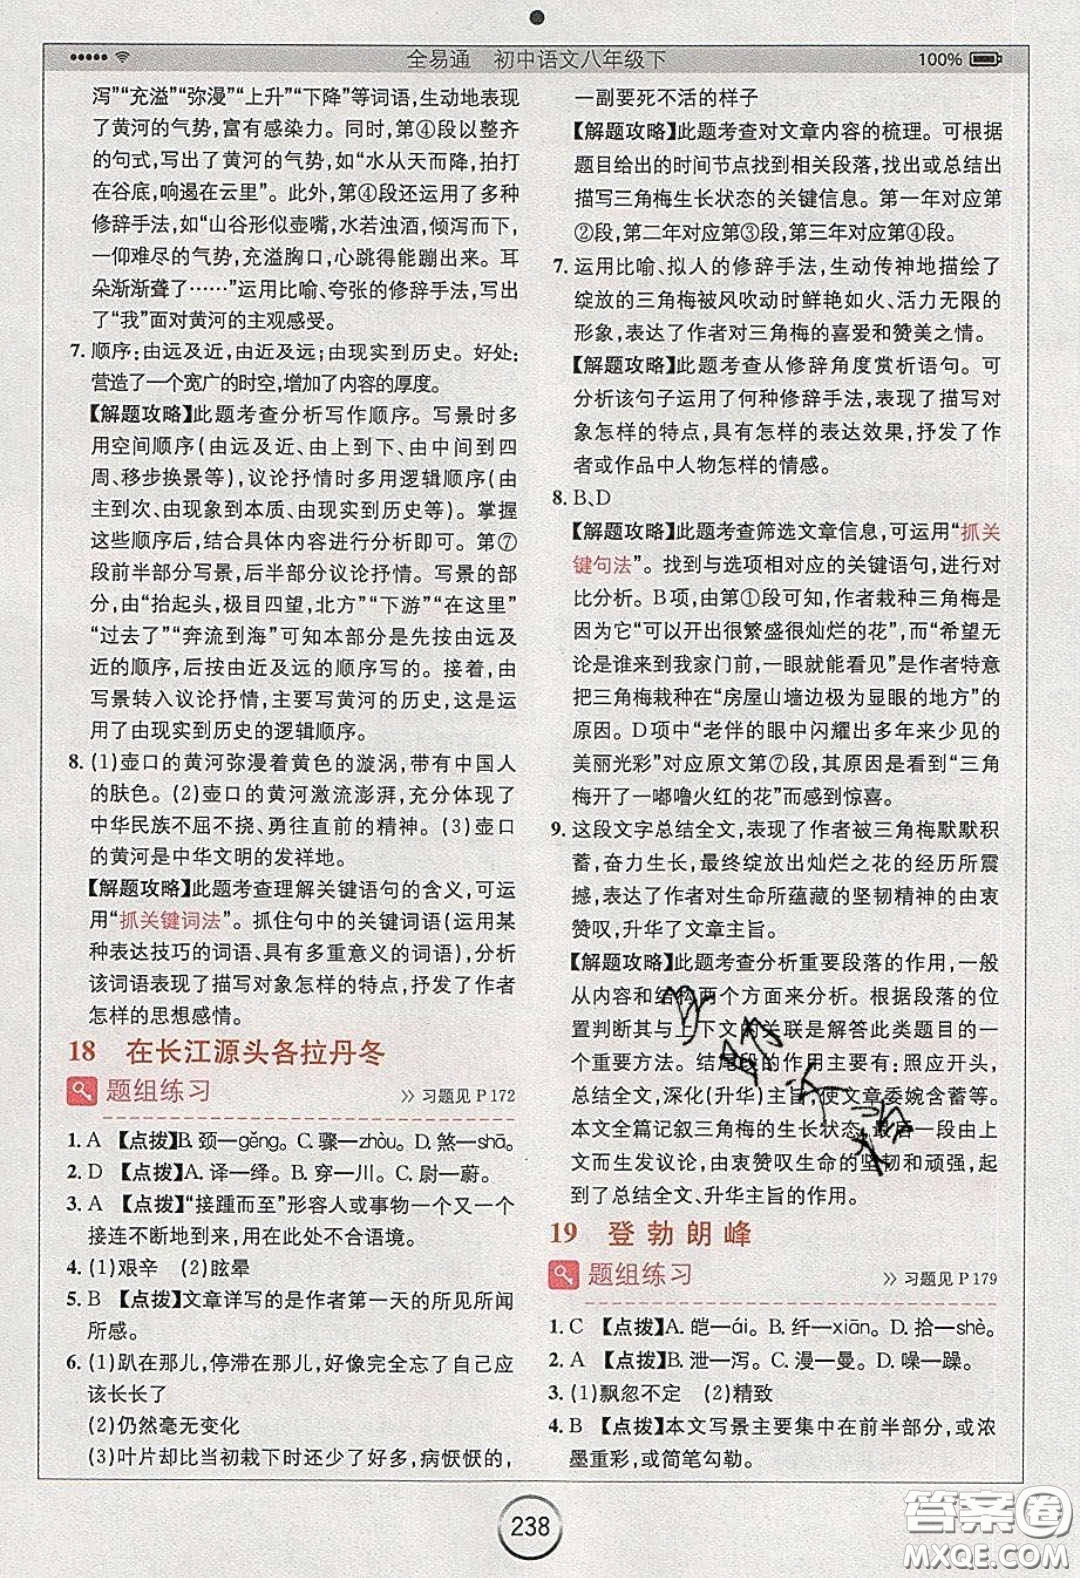 全易通 初中语文八年级下
100%
泻”“充溢”“弥漫”“上升”“下降”等词语,生动地表现
了黄河的气势,富有感染力。同时,第④段以整齐
的句式,写出了黄河的气势,如“水从天而降,拍打
在谷底,响遏在云里”。此外,第④段还运用了多种
修辞手法,如“山谷形似壶嘴,水若浊酒,倾泻而下,
一仰难尽的气势,充溢胸口,心跳得能蹦出来。耳
朵渐渐聋了……”运用比喻、夸张的修辞手法,写出
了“我”面对黄河的主观感受。
7. 顺序:由远及近,由近及远;由现实到历史。好处:
营造了一个宽广的时空,增加了内容的厚度。
【解题攻略】此题考查分析写作顺序。写景时多
用空间顺序(由远及近、由上到下、由中间到四
周、移步换景等),议论抒情时多用逻辑顺序(由
主到次、由浅到深、由现实到历史等)。掌握
这些顺序后,结合具体内容进行分析即可。第⑦
段前半部分写景,后半部分议论抒情。写景的部
分,由“抬起头,极目四望,北方”“下游”“在这里”
“过去了”“奔流到海”可知本部分是先按由远及
近的顺序,后按由近及远的顺序写的。接着,由
写景转入议论抒情,主要写黄河的历史,这是运
用了由现实到历史的逻辑顺序。
8. (1)壶口的黄河弥漫着黄色的漩涡,带有中国人
的肤色。(2)壶口的黄河激流澎湃,充分体现了
中华民族不屈不挠、勇往直前的精神。(3)壶口
的黄河是中华文明的发祥地。
【解题攻略】此题考查理解关键语句的含义,可运
用“抓关键词法”。抓住句中的关键词语(运用某
种表达技巧的词语、具有多重意义的词语),分析
该词语表现了描写对象怎样的特点,抒发了作者
怎样的思想感情。
18 在长江源头各拉丹冬
题组练习
》 习题见 P 172
1. A 【点拨】B. 颈—gěng。C. 骤—zhòu。D. 煞—shā。
2. D 【点拨】A. 译—绎。B. 穿—川。C. 尉—蔚。
3. A 【点拨】“接踵而至”形容人或事物一个又一个
接连不断地到来,用在此处不合语境。
4. (1)艰辛 (2)眩晕
5. B 【点拨】文章详写的是作者第一天的所见所闻
所感。
6. (1)趴在那儿,停滞在那儿,好像完全忘了自己应
该长长了
(2)仍然毫无变化
(3)叶片却比当初栽下时还少了好多,病恹恹的,
一副要死不活的样子
【解题攻略】此题考查对文章内容的梳理。可根据
题目给出的时间节点找到相关段落,找出或总结出
描写三角梅生长状态的关键信息。第一年对应第
②段,第二年对应第③段,第三年对应第④段。
7. 运用比喻、拟人的修辞手法,生动传神地描绘了
绽放的三角梅被风吹动时鲜艳如火、活力无限的
形象,表达了作者对三角梅的喜爱和赞美之情。
【解题攻略】此题考查从修辞角度赏析语句。可
分析该句子运用了何种修辞手法,表现了描写对
象怎样的特点,具有怎样的表达效果,抒发了作
者或作品中人物怎样的情感。
8. B、D
【解题攻略】此题考查筛选文章信息,可运用“抓关
键句法”。找到与选项相对应的关键语句,进行对
比分析。B项,由第①段可知,作者栽种三角梅是
因为它“可以开出很繁盛很灿烂的花”,而“希望无
论是谁来到我家门前,一眼就能看见”是作者特意
把三角梅栽种在“房屋山墙边极为显眼的地方”的
原因。D项中“老伴的眼中闪耀出多年来少见的
美丽光彩”对应原文第⑦段,这是因为看到“三角
梅开了一嘟噜火红的花”而感到惊喜。
9. 这段文字总结全文,表现了作者被三角梅默默积
蓄,奋力生长,最终绽放出灿烂之花的经历所震
撼,表达了作者对生命所蕴藏的坚韧精神的由衷
赞叹,升华了文章主旨。
【解题攻略】此题考查分析重要段落的作用,一般
从内容和结构两个方面来分析。根据段落的位
置判断其与上下文的关联是解答此类题目的一
个重要方法。结尾段的作用主要有:照应开头,
总结全文,深化(升华)主旨,使文章委婉含蓄等。
本文全篇记叙三角梅的生长状态,最后一段由上
文而生发议论,由衷赞叹生命的坚韧和顽强,起
到了总结全文、升华主旨的作用。
19 登勃朗峰
题组练习
》 习题见 P 179
1. C 【点拨】A. 皑—ái。B. 纤—xiān。D. 拾—shè。
2. A 【点拨】B. 泄—泻。C. 漫—曼。D. 噪—躁。
3. (1)飘忽不定 (2)精致
4. B 【点拨】本文写景主要集中在前半部分,或浓
墨重彩,或简笔勾勒。
238
答案圈
MXQE.COM